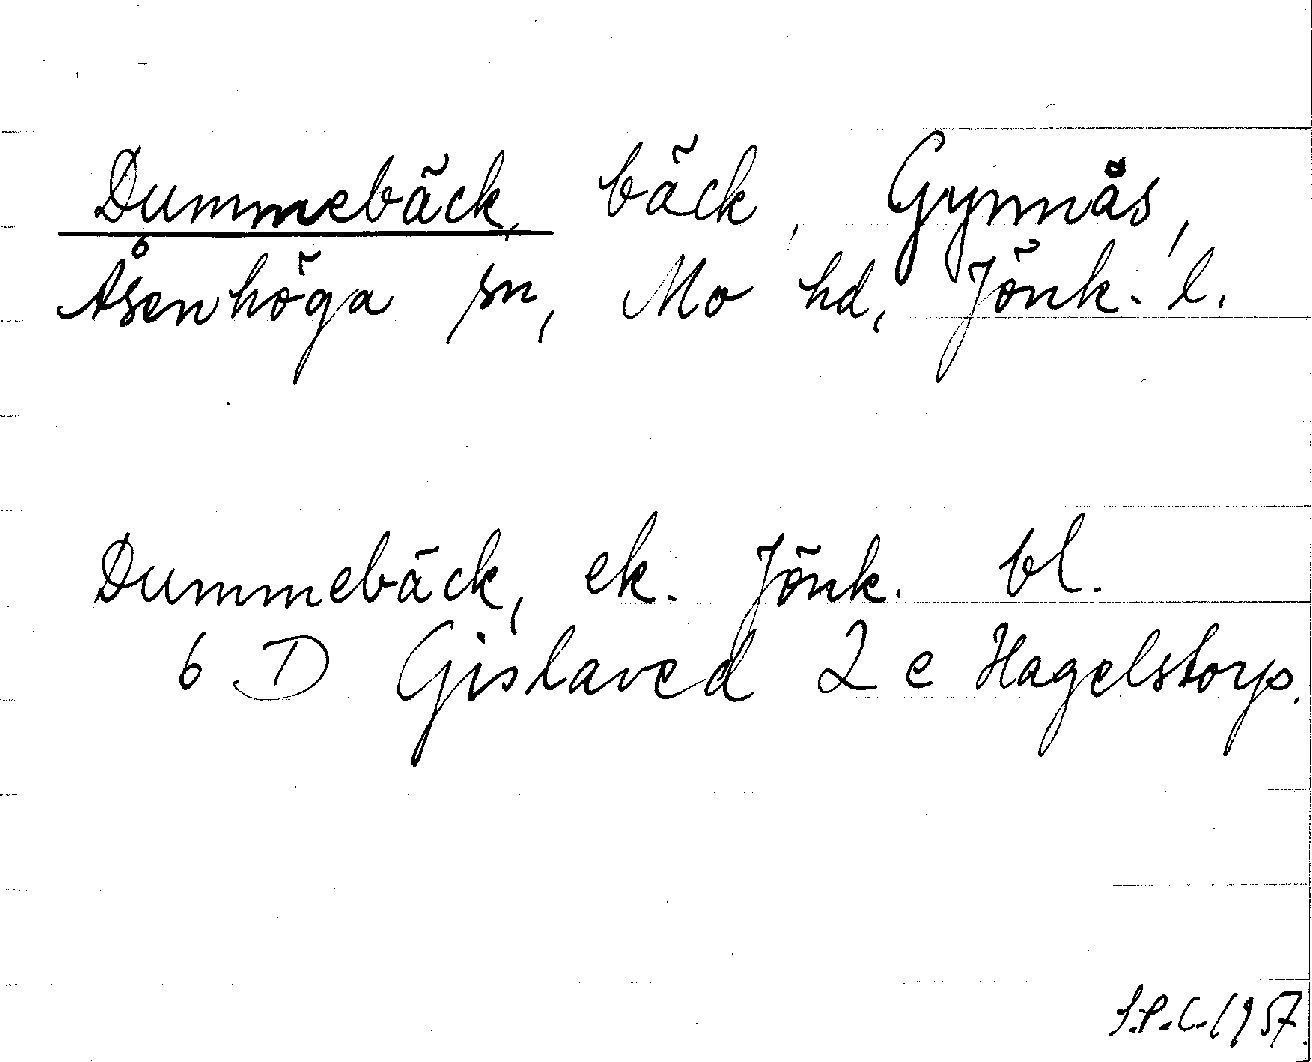 Dummebäck, bäck, Gynnås,
Åsenhöga sn, Mo hd, Jönk. l.
Dummebäck, ek. Jönk. bl.
6 D Gislaved 2 e Hagelstorp.
S.P.C. 1957